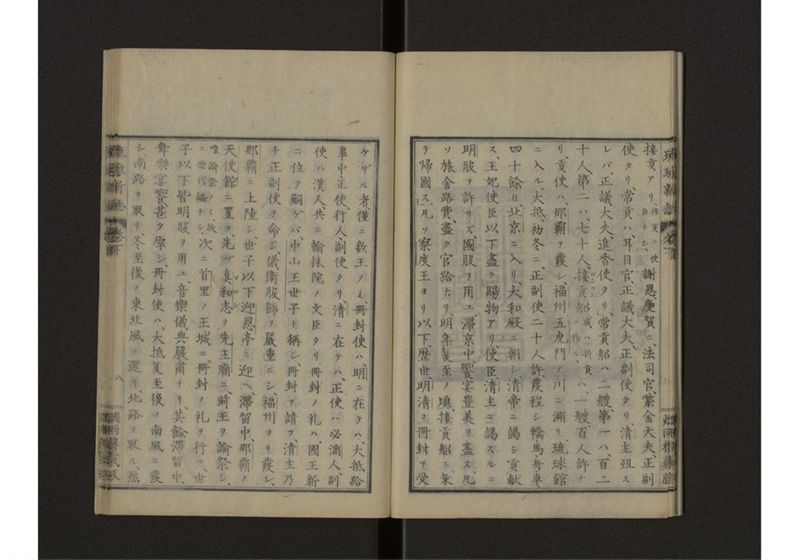 接貢アリ、接貢ニハ使臣ナシ、謝恩慶賀ニ、法司官、紫金大夫、正副
使タリ、常貢ハ、耳目官正議大夫、正副使タリ、清主殂ス
レバ正議大夫、進香使タリ、常貢船ハ二艘第一ハ、百二
十人、第二ハ、七十人接貢船ハ一艘、百人許ナ
リ、貢使ハ、那覇ヲ発シ福州五虎門ノ川ニ溯リ琉球館
ニ入ル、大抵初冬ニ正副使二十人許発程シ轎馬舟車
四十餘日北京ニ入リ、大和殿ニ朝シ清帝ニ謁シ貢献
ス、王妃使臣以下盡ク賜物アリ、使臣清主ニ謁スルニ
明服ヲ許サズ國服ヲ用ユ、滞京中饗宴豊美ヲ盡ス、凡
ソ旅舎路費、盡ク官給ナリ、明年夏至ノ頃、接貢船ニ乗
テ帰國ス、凡ソ察度王ヨリ以下、歴世明清ノ冊封ヲ受
ケザル者僅ニ数王ノミ、冊封使ハ明ニ在テハ、大抵給
事中正使行人、副使タリ、清ニ在テハ、正使ハ必満人、副
使ハ漢人、共ニ翰林院ノ文臣タリ、冊封ノ礼ハ、國王新
ニ位ヲ嗣ゲバ中山王世子ト稱シ冊封ヲ請フ、清主乃
チ正副使ヲ命シ儀衛服飾ヲ嚴重ニシ福州ヨリ発シ、
那覇ニ上陸シ、世子以下迎恩亭ニ迎ヘ滞留中、那覇ノ
天使館ニ置ク、先ヅ真和志ノ先王廟ニ前王ヲ諭祭シ、
次ニ首里ノ王城ニ冊封ノ礼ヲ行フ、世
子以下皆明服ヲ用ユ音樂儀典嚴肅ナリ、其餘滞留中、
舞樂宴饗甚タ厚シ冊封使ハ、大抵夏至後ノ南風ニ発
シ南路ヲ取リ、冬至後ノ東北風ニ還リ北路ヲ取ル、然